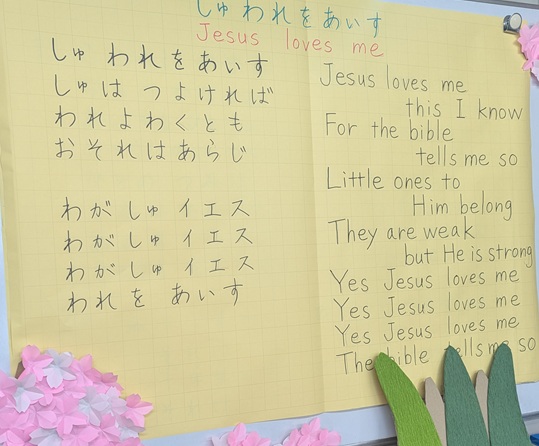 しゅわれをあいす
Jesus loves me
しゅ われ を あいす
しゅ は つよければ
われ よわく とも
おそれ は あらじ
わが しゅ イエス
わが しゅ イエス
わが しゅ イエス
われ を あいす
Jesus loves me
this I know
For the bible
tells me so
Little ones to
Him belong
They are weak
but He is strong
Yes Jesus loves me
Yes Jesus loves me
Yes Jesus loves me
The bible tells me so